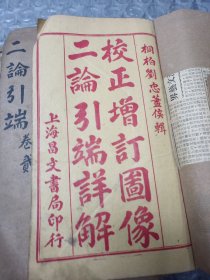 桐柏劉忠藎侯輯
校正增訂圖像
二論引端詳解
上海昌文書局印行
二論引端卷貳